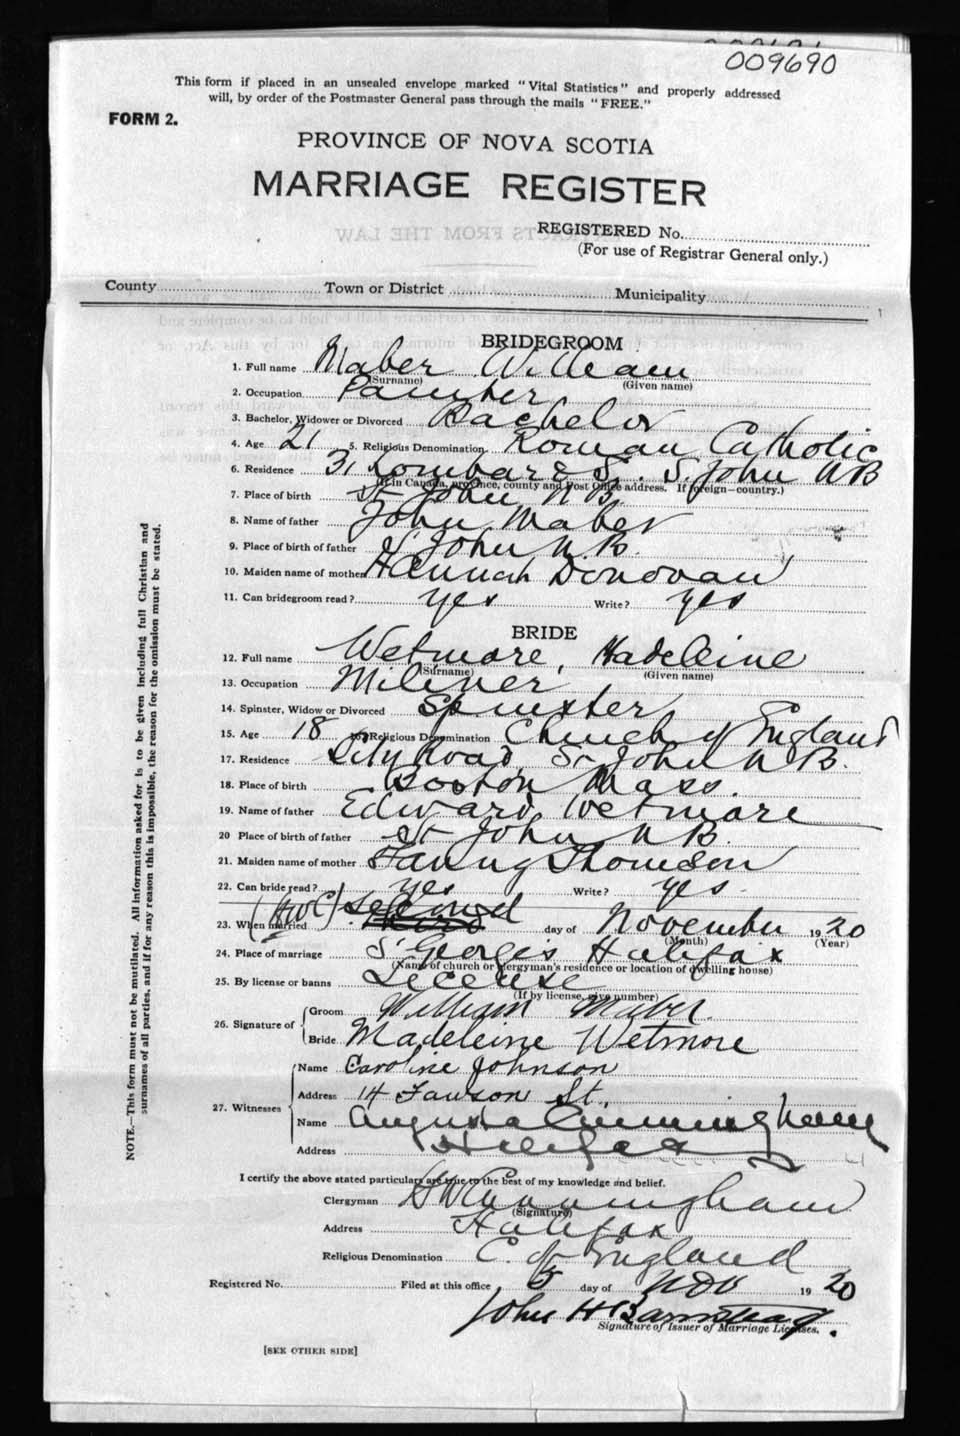 009690
This form if placed in an unsealed envelope marked "Vital Statistics" and properly addressed
will, by order of the Postmaster General pass through the mails "FREE."
FORM 2.
PROVINCE OF NOVA SCOTIA
MARRIAGE REGISTER
REGISTERED No.
(For use of Registrar General only.)
County Town or District Municipality
BRIDEGROOM
1. Full name Maber William
(Surname) (Given name)
2. Occupation Painter
3. Bachelor, Widower or Divorced Bachelor
4. Age 21 5. Religious Denomination Roman Catholic
6. Residence 31 Lombard St. St John N B
(If in Canada, province, county and Post Office address. If foreign—country.)
7. Place of birth St John N B.
8. Name of father John Maber
9. Place of birth of father St John N. B.
10. Maiden name of mother Hannah Donovan
11. Can bridegroom read? yes Write? yes
BRIDE
12. Full name Wetmore, Madeleine
(Surname) (Given name)
13. Occupation Miliner
14. Spinster, Widow or Divorced Spinster
15. Age 18 16. Religious Denomination Church of England
17. Residence City Road, St John N B.
18. Place of birth Boston Mass.
19. Name of father Edward Wetmore
20 Place of birth of father St John N B.
21. Maiden name of mother Fanny Thomson
22. Can bride read? yes Write? yes.
(HWC) second
23. When married Third day of November 1920
(Month) (Year)
24. Place of marriage St Georges Halifax
(Name of church or clergyman's residence or location of dwelling house)
25. By license or banns License
(If by license, give number)
26. Signature of Groom William Maber.
Bride Madeleine Wetmore
27. Witnesses Name Caroline Johnson
Address 14 Fawson St.,
Name Augusta Cunningham
Address Halifax
I certify the above stated particulars are true to the best of my knowledge and belief.
Clergyman H W Cunningham
(Signature)
Address Halifax
Religious Denomination C. of England
Registered No. Filed at this office 5 day of Nov 1920
John H Barnstead.
Signature of Issuer of Marriage Licenses.
[SEE OTHER SIDE]
NOTE.—This form must not be mutilated. All information asked for is to be given including full Christian and
surnames of all parties, and if for any reason this is impossible, the reason for the omission must be stated.